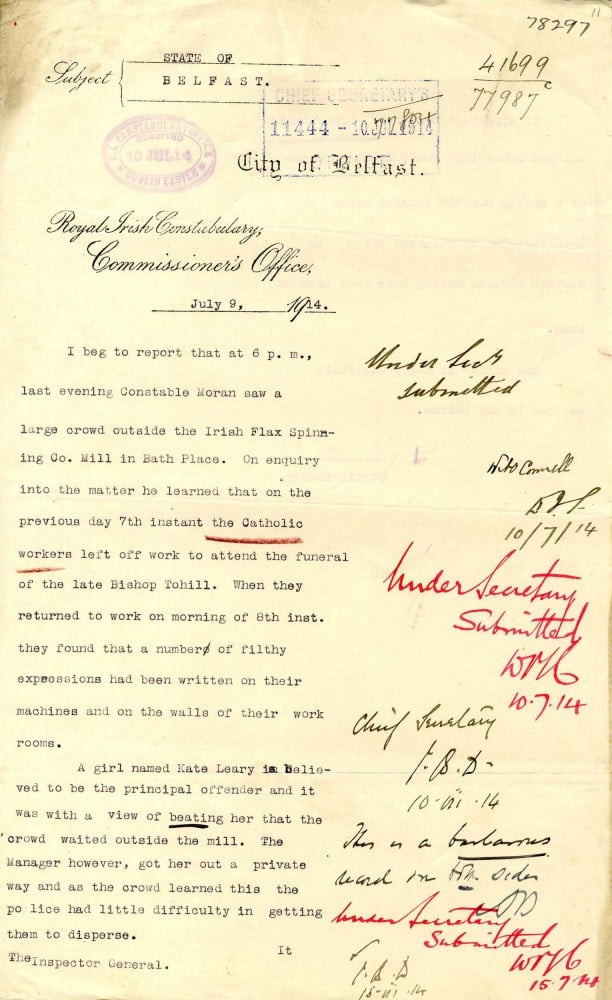 11
78297
STATE OF
Subject BELFAST.
41699
77987 c
CHIEF SECRETARY'S
11444 - 10 JUL 1914
R.I. CONSTABULARY OFFICE
RECEIVED
10 JUL 14
DUBLIN CASTLE
City of Belfast.
Royal Irish Constabulary,
Commissioner's Office,
July 9, 1914.
I beg to report that at 6 p. m.,
last evening Constable Moran saw a
large crowd outside the Irish Flax Spinn-
ing Co. Mill in Bath Place. On enquiry
into the matter he learned that on the
previous day 7th instant the Catholic
workers left off work to attend the funeral
of the late Bishop Tohill. When they
returned to work on morning of 8th inst.
they found that a number of filthy
expressions had been written on their
machines and on the walls of their work
rooms.
A girl named Kate Leary is belie-
ved to be the principal offender and it
was with a view of beating her that the
crowd waited outside the mill. The
Manager however, got her out a private
way and as the crowd learned this the
po lice had little difficulty in getting
them to disperse.
It
The Inspector General.
Under Secy
submitted
10/7/14
Under Secretary
Submitted
10.7.14
Chief Secretary
J.B.D-
10.vii.14
This is a barbarous
record on both sides
Under Secretary
Submitted
15.7.14
J.B.D
15.vii.14